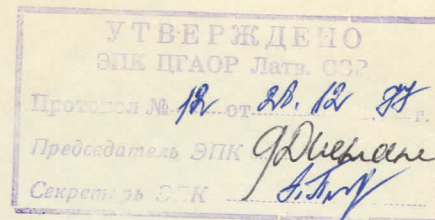 УТВЕРЖДЕНО
ЭПК ЦГАОР Латв. ССР
Протокол № 12 от 28. 12 77 г.
Председатель ЭПК
Секретарь ЭПК